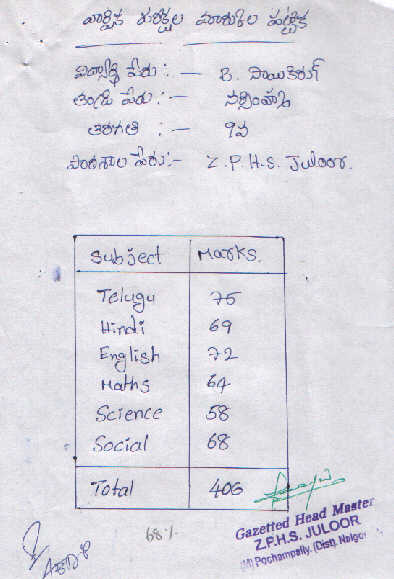 వార్షిక పరీక్షల మార్కుల పట్టిక
విద్యార్థి పేరు :- B. సాయికిరణ్
తండ్రి పేరు :- నర్సింహ్మ
తరగతి :- 9వ
పాఠశాల పేరు :- Z.P.H.S. Juloor.
Subject Marks.
Telugu 75
Hindi 69
English 72
Maths 64
Science 58
Social 68
Total 406
68%
Gazetted Head Master
Z.P.H.S. JULOOR
(M) Pochampally, (Dist) Nalgonda